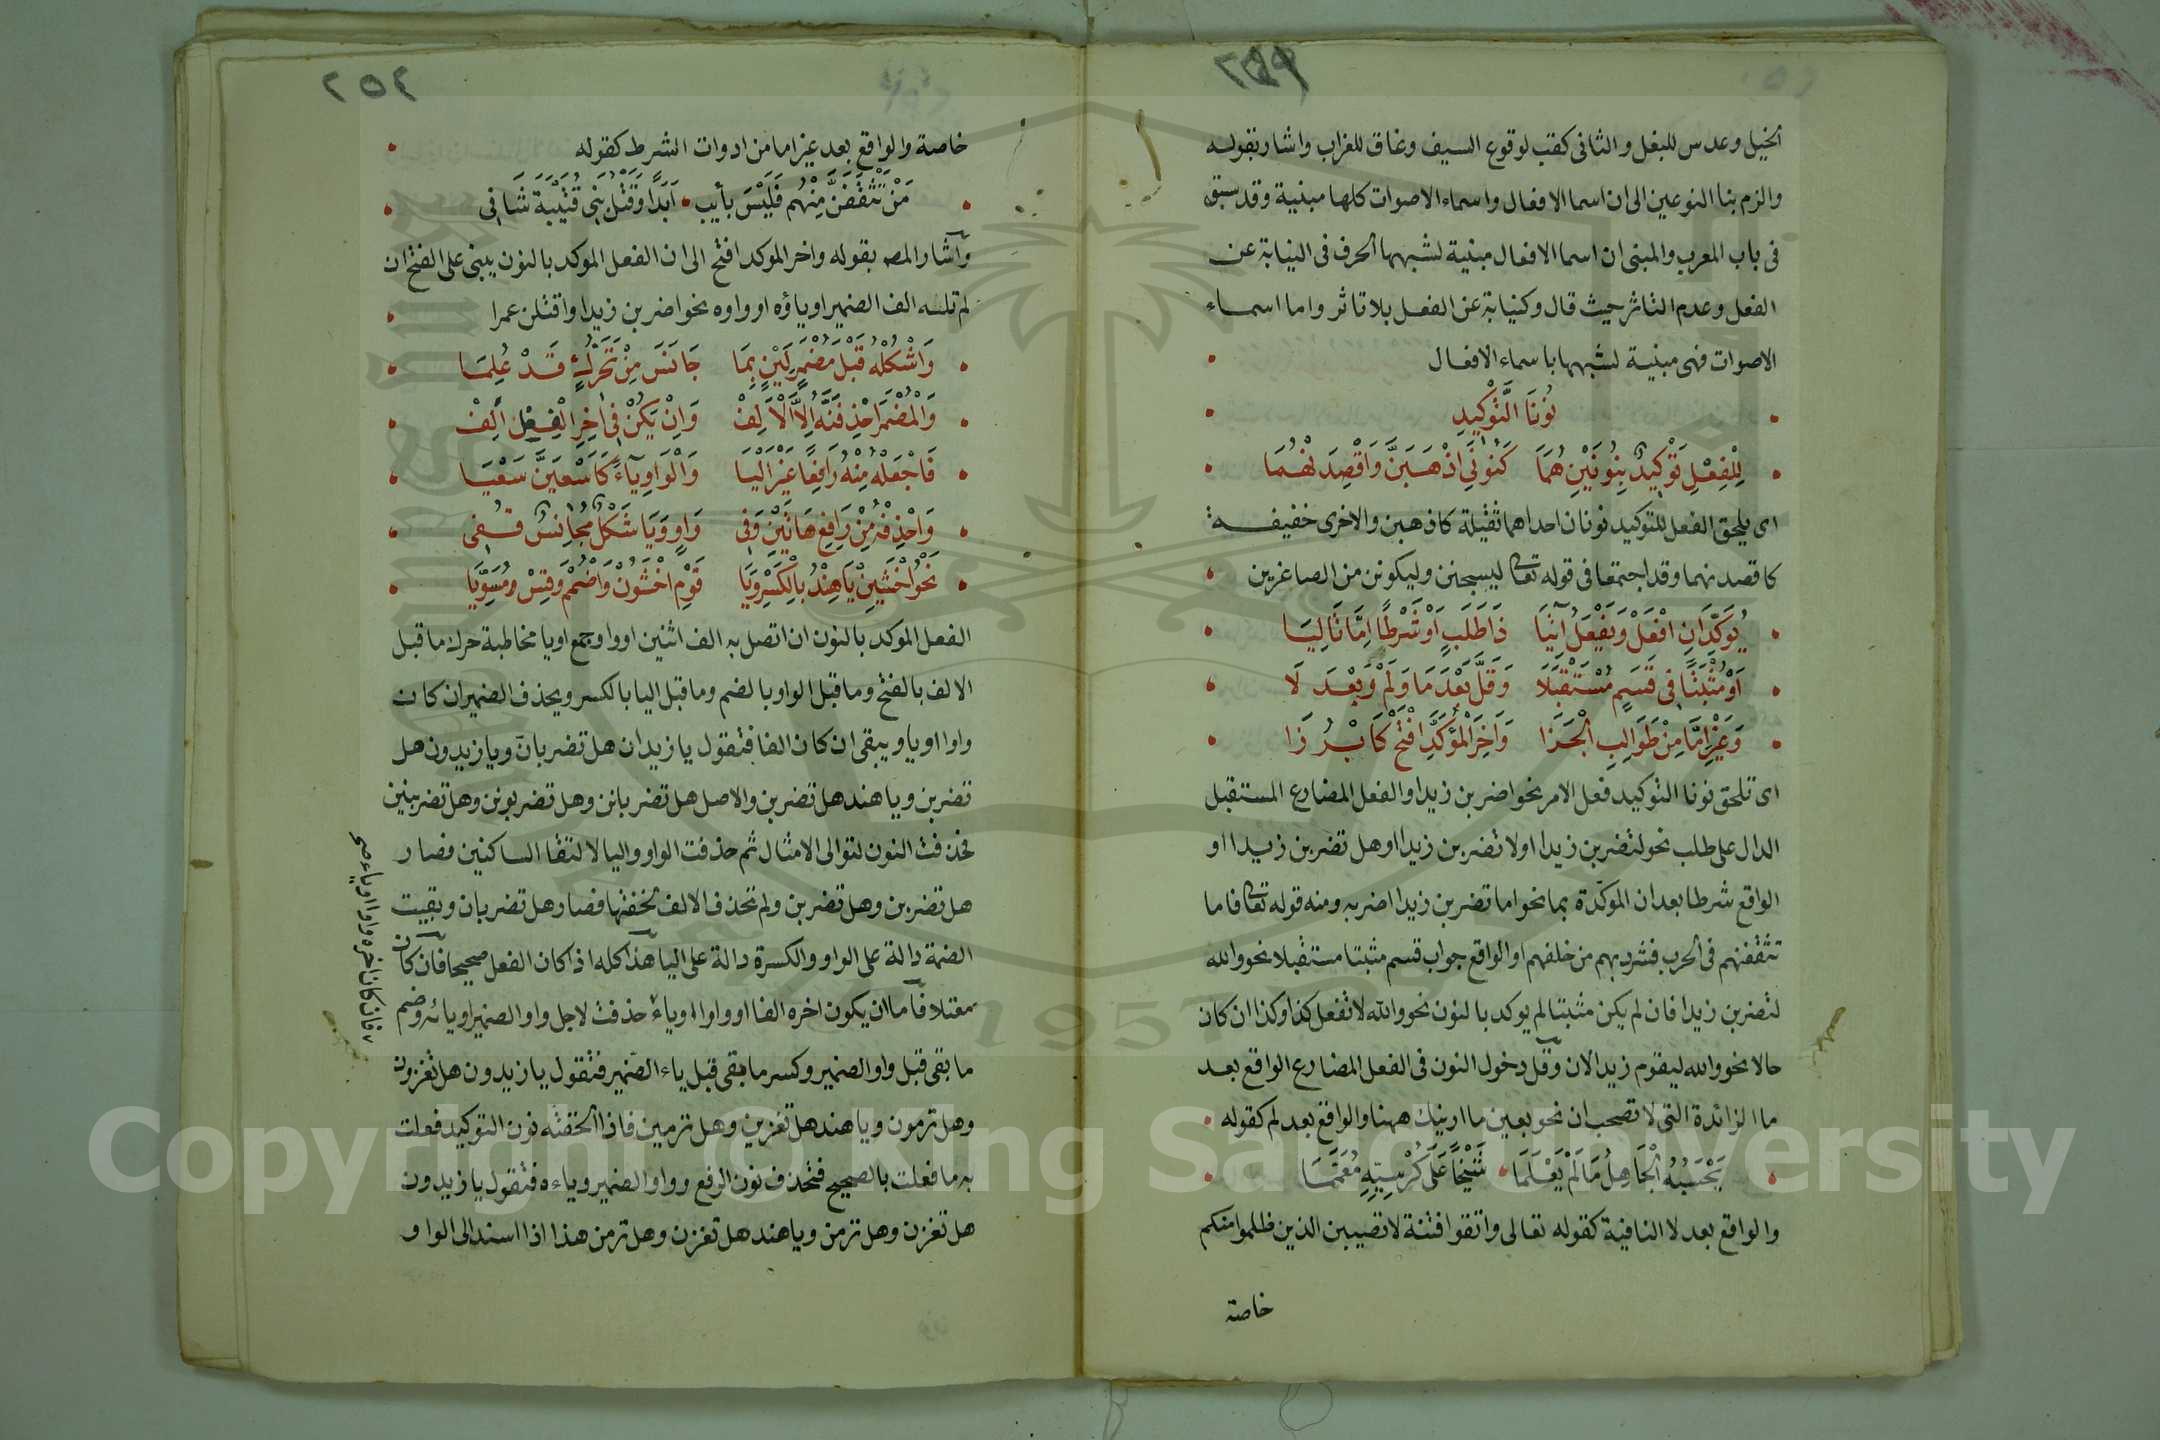 ٢٥٩
الخيل وعدس للبغل والثانى كقب لوقوع السيف وغاق للغراب واشار بقوله
والزم بنا النوعين الى ان اسما الافعال واسماء الاصوات كلها مبنية وقد سبق
فى باب المعرب والمبنى ان اسما الافعال مبنية لشبهها الحرف فى النيابة عن
الفعل وعدم التاثر حيث قال وكنيابة عن الفعل بلا تاثر واما اسماء
الاصوات فهى مبنية لشبهها باسماء الافعال
نُونَا التَّوْكِيدِ
لِلْفِعْلِ تَوْكِيدٌ بِنُونَيْنِ هُمَا كَنُونَيِ اذْهَبَنَّ وَاقْصِدَنْهُمَا
اى يلحق الفعل للتوكيد نونان احداهما ثقيلة كاذهبن والاخرى خفيفه
كاقصدنهما وقد اجتمعا فى قوله تعالى ليسجنن وليكونن من الصاغرين
يُوَكِّدَانِ افْعَلْ وَيَفْعَلْ آتِيَا ذَا طَلَبٍ اَوْ شَرْطًا اِمَّا تَالِيَا
اَوْ مُثْبَتًا فِى قَسَمٍ مُسْتَقْبَلَا وَقَلَّ بَعْدَ مَا وَلَمْ وَبَعْدَ لَا
وَغَيْرِ اِمَّا مِنْ طَوَالِبِ الْجَزَا وَآخِرَ الْمُؤَكَّدِ افْتَحْ كَابْرُزَا
اى تلحق نونا التوكيد فعل الامر نحو اضربن زيدا والفعل المضارع المستقبل
الدال على طلب نحو لتضربن زيدا او لا تضربن زيدا او هل تضربن زيدا او
الواقع شرطا بعد ان الموكدة بما نحو اما تضربن زيدا اضربه ومنه قوله تعالى فاما
تثقفنهم فى الحرب فشرد بهم من خلفهم او الواقع جواب قسم مثبتا مستقبلا نحو والله
لتضربن زيدا فان لم يكن مثبتا لم يوكد بالنون نحو والله لا تفعل كذا وكذا ان كان
حالا نحو والله ليقوم زيد الان وقل دخول النون فى الفعل المضارع الواقع بعد
ما الزائدة التى لا تصحب ان نحو بعين ما ارينك ههنا والواقع بعد لم كقوله
يَحْسَبُهُ الْجَاهِلُ مَا لَمْ يَعْلَمَا شَيْخًا عَلَى كُرْسِيِّهِ مُعَمَّمَا
والواقع بعد لا النافية كقوله تعالى واتقوا فتنة لا تصيبن الذين ظلموا منكم
خاصة
٢٥٤
خاصة والواقع بعد غير اما من ادوات الشرط كقوله
مَنْ تَثْقَفَنْ مِنْهُم فَلَيْسَ بِآيِبٍ اَبَدًا وَقَتْلُ بَنِى قُتَيْبَةَ شَافِى
واشار المص بقوله واخر الموكد افتح الى ان الفعل الموكد بالنون يبنى على الفتح ان
لم تلسه الف الضمير او ياؤه او واوه نحو اضربن زيدا واقتلن عمرا
وَاشْكُلْهُ قَبْلَ مُضْمَرٍ لَيْنٍ بِمَا جَانَسَ مِنْ تَحَرُّكٍ قَدْ عُلِمَا
وَالْمُضْمَرَ احْذِفَنَّهُ اِلَّا الْاَلِفْ وَاِنْ يَكُنْ فِى اخِرِ الْفِعْلِ اَلِفْ
فَاجْعَلْهُ مِنْهُ رَافِعًا غَيْرَ الْيَا وَالْوَاوِ يَاءً كَاسْعَيَنَّ سَعْيَا
وَاحْذِفْهُ مِنْ رَافِعِ هَاتَيْنِ وَفِى وَاوٍ وَيَا شَكْلٌ مُجَانِسٌ قُفِى
نَحْوُ اخْشَيِنْ يَا هِنْدُ بِالْكَسْرِ وَيَا قَوْمِ اخْشَوُنْ وَاضْمُمْ وَقِسْ مُسَوِّيَا
الفعل الموكد بالنون ان اتصل به الف اثنين او واو جمع او يا مخاطبة حرك ما قبل
الالف بالفتح وما قبل الواو بالضم وما قبل اليا بالكسر ويحذف الضمير ان كان
واوا او يا ويبقى ان كان الفا فتقول يا زيدان هل تضربان ويا زيدون هل
تضربن ويا هند هل تضربن والاصل هل تضربانن وهل تضربونن وهل تضربينن
فحذفت النون لتوالى الامثال ثم حذفت الواو واليا لالتقا الساكنين فصار
هل تضربن وهل تضربن ولم تحذف الالف لخفتها فصار هل تضربان وبقيت
الضمة دالة على الواو والكسرة دالة على اليا هذا كله اذا كان الفعل صحيحا فان كان
معتلا فاما ان يكون اخره الفا او واوا او ياء حذفت لاجل واو الضمير او يائه وضم
ما بقى قبل واو الضمير وكسر ما بقى قبل ياء الضمير فتقول يا زيدون هل تغزون
وهل ترمون ويا هند هل تغزين وهل ترمين فاذا الحقته نون التوكيد فعلت
به ما فعلت بالصحيح فتحذف نون الرفع وواو الضمير وياءه فتقول يا زيدون
هل تغزن وهل ترمن ويا هند هل تغزن وهل ترمن هذا اذا اسند الى الواو و
فان كان اخره واوا او ياء صح
1957
Copyright © King Saud University